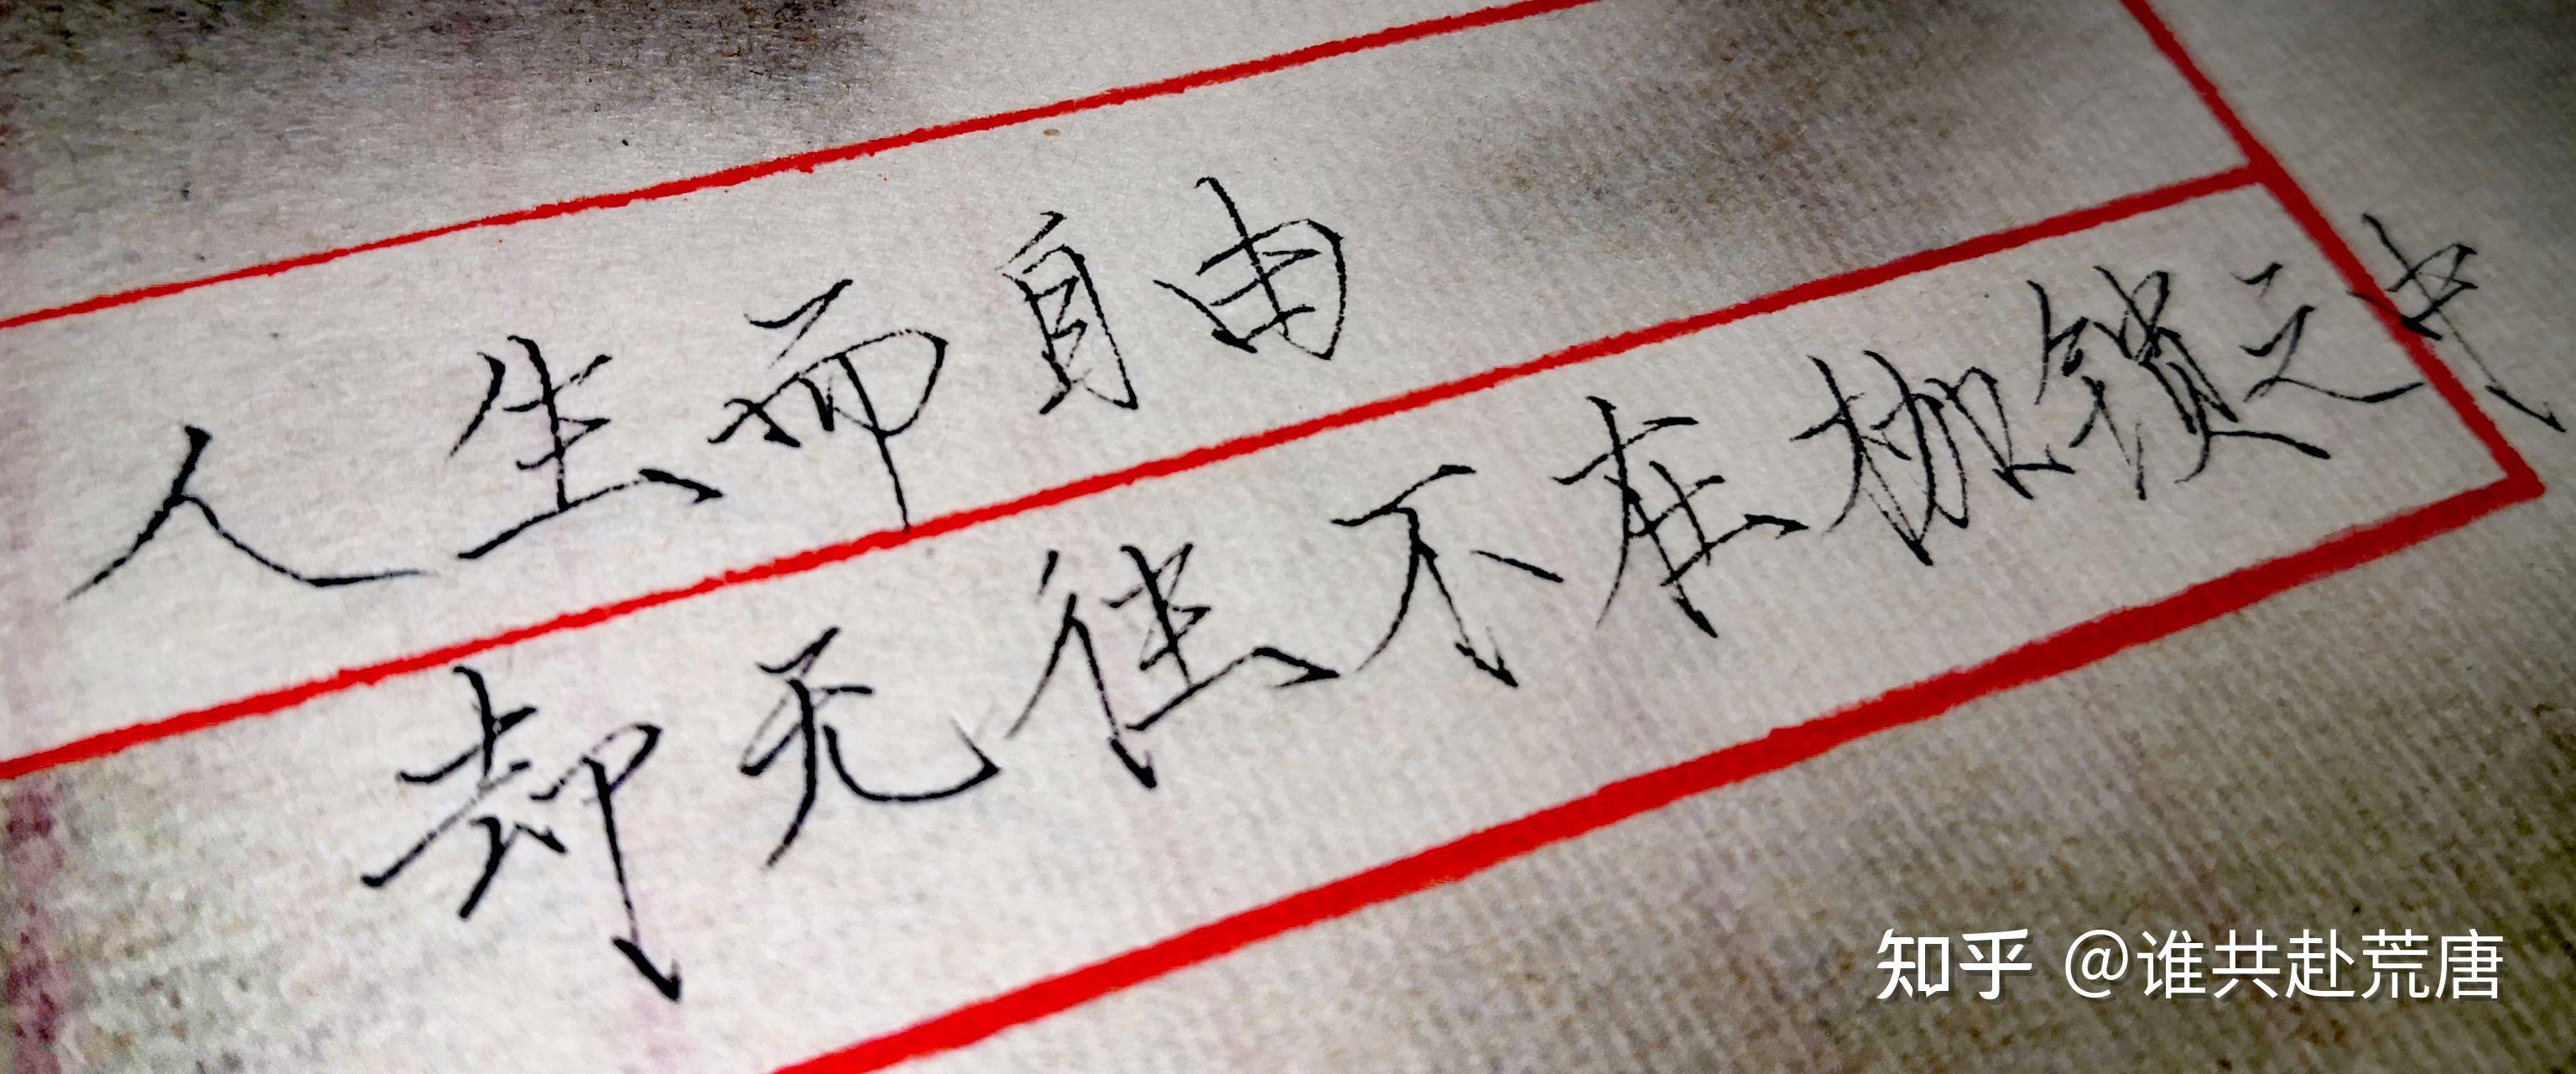 人生而自由
却无往不在枷锁之中
知乎 @谁共赴荒唐